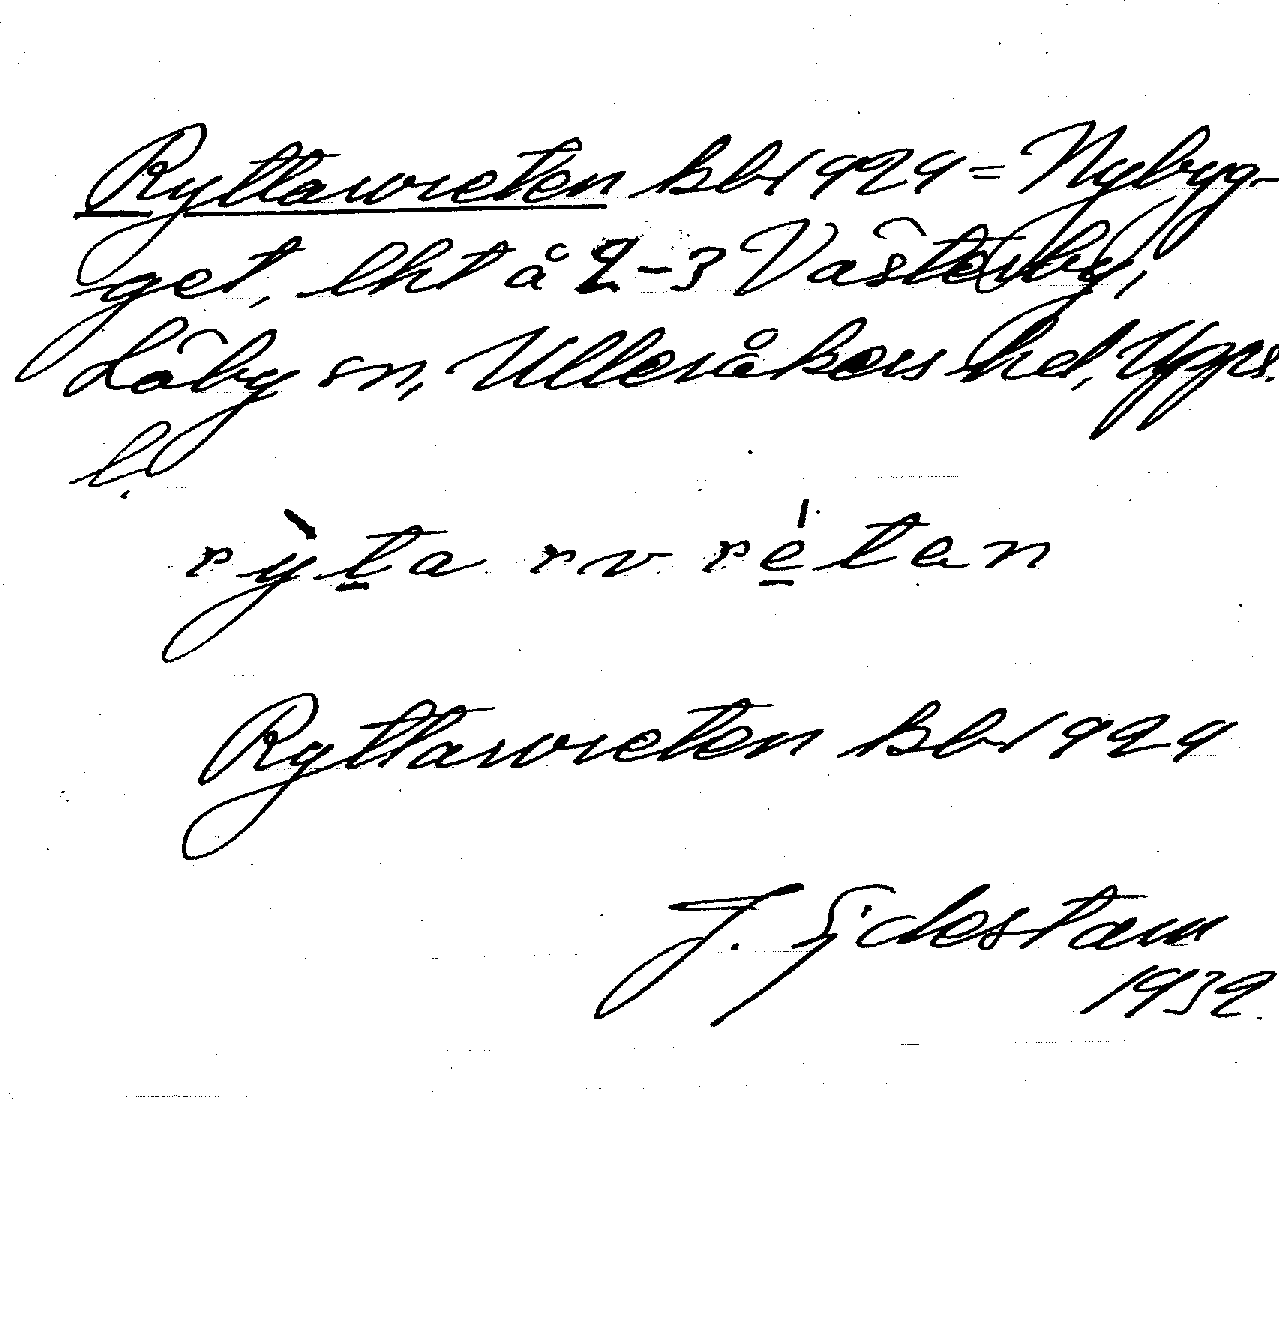 Ryttarvreten kbl 1929 = Nybyg-
get, lht å 2-3 Västerby,
Läby sn, Ulleråkers hd, Upps.
l.
rỳta rv réten
Ryttarvreten kbl 1929
J. Sjdestam
1932.